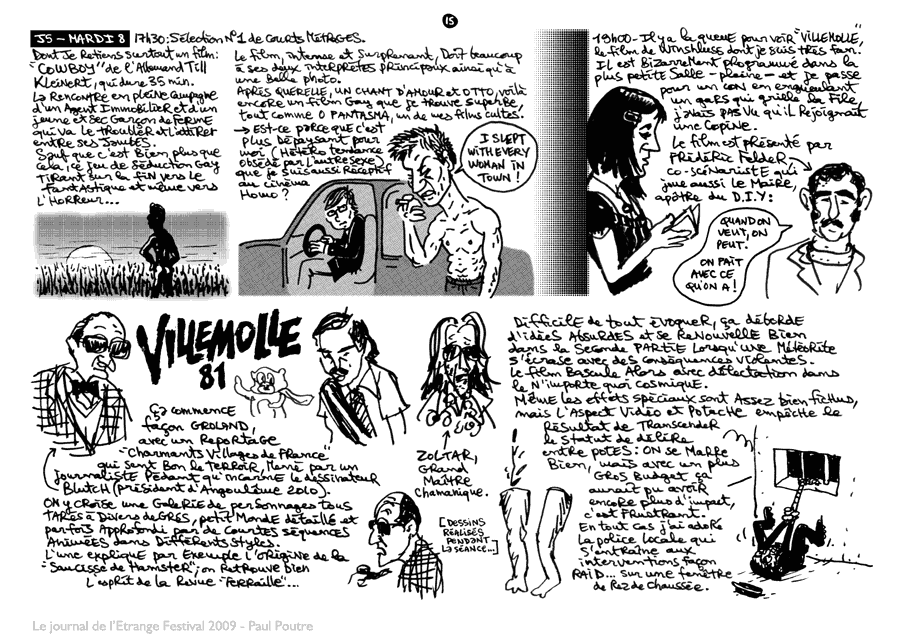 15
J5 - MARDI 8 17H30: Sélection N°1 de Courts Métrages.
Dont Je Retiens surtout un film:
"COWBOY" de l'Allemand Till
Kleinert, qui dure 35 min.
La Rencontre en pleine campagne
d'un Agent Immobilier et d'un
jeune et sec Garçon de FERME
qui va le troubler et l'attirer
entre ses Jambes.
Sauf que c'est Bien plus que
cela, ce jeu de séduction Gay
TIRENT sur la fin vers le
Fantastique et même vers
l'Horreur...
Le film, intense et surprenant, Doit beaucoup
à ses deux interprètes principaux ainsi qu'à
une Belle photo.
APRÈS QUERELLE, UN CHANT D'AMOUR et OTTO, voilà
encore un film Gay que je trouve superbe,
tout comme O FANTASMA, un de mes films cultes.
→ Est-ce parce que c'est
plus dépaysant pour
moi (Hétéro tendance
obsédé par l'autre sexe)
que je suis aussi Réceptif
au cinéma
Homo?
I SLEPT
WITH EVERY
WOMAN IN
TOWN!
19h00 - Il y a la queue pour voir "VILLEMOLLE,
le film de Winshluss dont je suis très fan.
Il est Bizarrement programmé dans la
plus petite Salle - pleine - et je passe
pour un con en engueulant
un gars qui grille la File,
j'avais pas vu qu'il Rejoignait
une Copine.
Le film est présenté par
Frédéric Felder
co-scénariste qui
joue aussi le Maire,
apôtre du D.I.Y:
QUAND ON
VEUT, ON
PEUT.
ON FAIT
AVEC CE
QU'ON A!
VILLEMOLLE
81
Ça commence
façon GROLAND,
avec un Reportage
"Charmants Villages de France"
qui sent Bon le terroir, Mené par un
journaliste Pédant qu'incarne le dessinateur
Blutch (président d'Angoulême 2010).
On y croise une Galerie de personnages tous
TARÉS à Divers degrés, petit Monde détaillé et
parfois Approfondi par de Courtes séquences
Animées dans Différents Styles.
L'une explique par Exemple l'origine de la
"Saucisse de Hamster"; on Retrouve bien
l'esprit de la Revue "Ferraille"...
ZOLTAR,
Grand
Maître
Chamanique.
[DESSINS
RÉALISÉS
PENDANT
LA SÉANCE...]
Difficile de tout évoquer, ça déborde
d'idées Absurdes et se Renouvelle Bien
dans la Seconde PARTIE Lorsqu'une Météorite
s'écrase avec des Conséquences Violentes.
Le film Bascule Alors avec délectation dans
le N'importe quoi cosmique.
Même les effets spéciaux sont Assez bien fichus,
mais l'Aspect Vidéo et Potache empêche le
Résultat de Transcender
le Statut de délire
entre potes: ON se Marre
Bien, mais avec un plus
GROS Budget ça
aurait pu avoir
encore plus d'impact,
c'est Frustrant.
En tout cas j'ai adoré
la police locale qui
s'entraîne aux
interventions façon
RAID... sur une fenêtre
de Rez de Chaussée.
Le journal de l'Etrange Festival 2009 - Paul Poutre